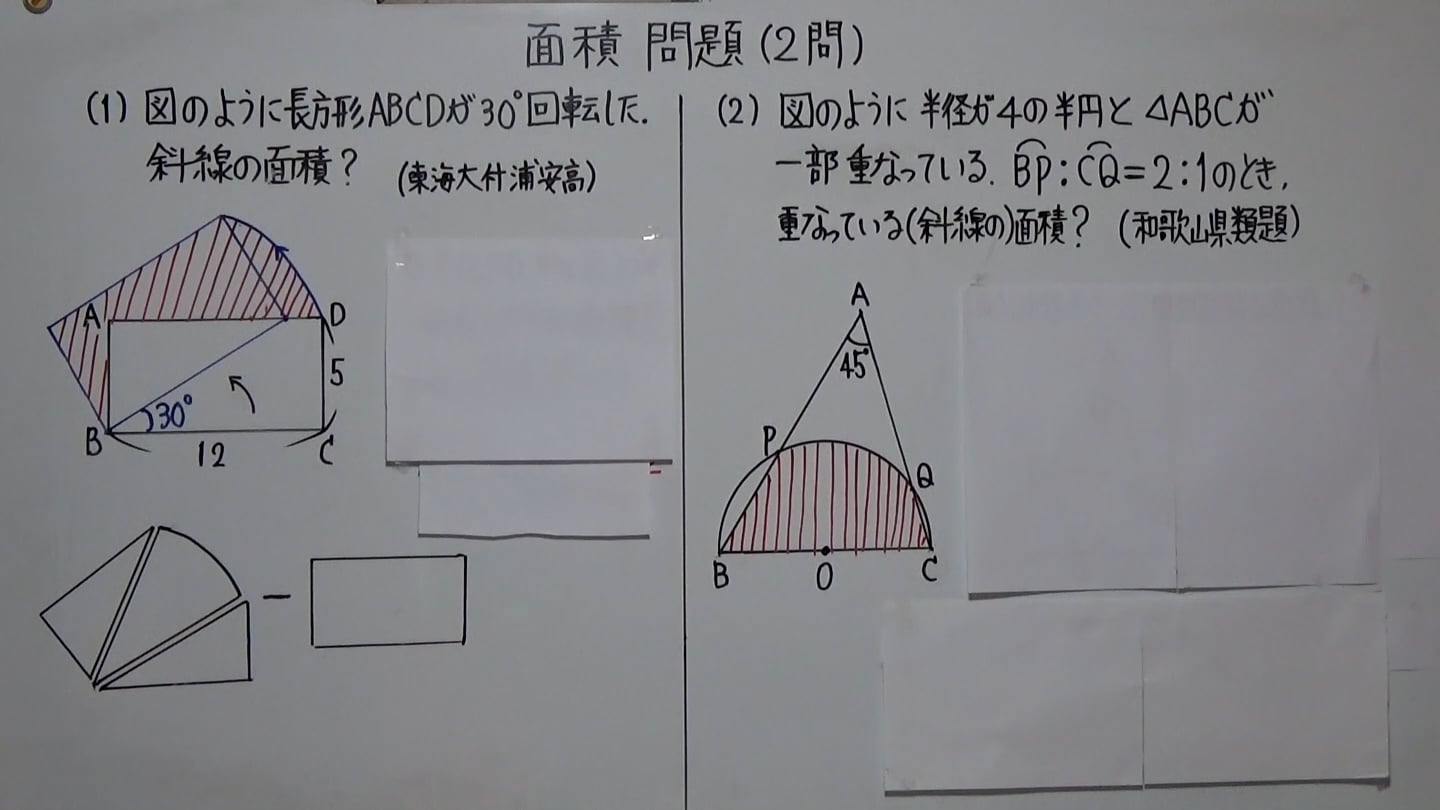 面積 問題(2問)
(1) 図のように長方形ABCDが30°回転した.
斜線の面積? (東海大付浦安高)
A
D
5
30°
B
12
C
(2) 図のように半径が4の半円と△ABCが
一部重なっている. B͡P:C͡Q=2:1のとき,
重なっている(斜線の)面積? (和歌山県類題)
A
45°
P
Q
B
O
C